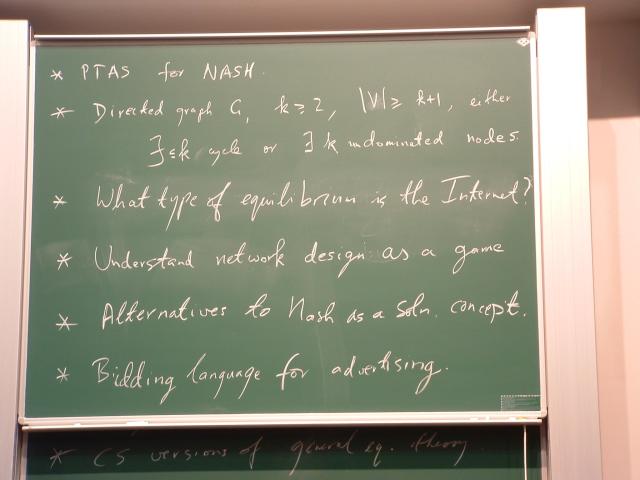 * PTAS for NASH.
* Directed graph G, k≥2, |V| ≥ k+1, either
∃ ≤k cycle or ∃ k undominated nodes.
* What type of equilibrium is the Internet?
* Understand network design as a game
* Alternatives to Nash as a soln. concept.
* Bidding language for advertising.
* CS versions of general eq. theory